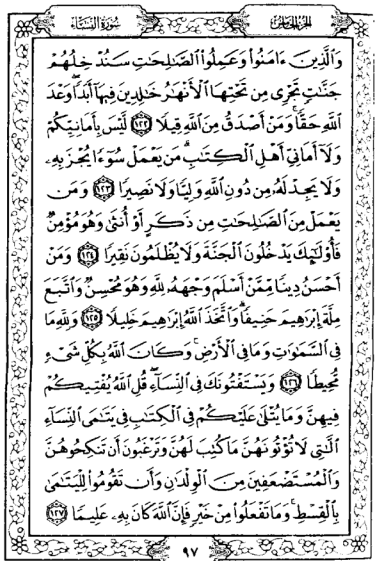 سُورَةُ النِّسَاءِ الجُزْءُ الخَامِسُ
وَالَّذِينَ ءَامَنُوا وَعَمِلُوا الصَّالِحَاتِ سَنُدْخِلُهُمْ
جَنَّاتٍ تَجْرِي مِن تَحْتِهَا الْأَنْهَارُ خَالِدِينَ فِيهَا أَبَدًا وَعْدَ
اللَّهِ حَقًّا وَمَنْ أَصْدَقُ مِنَ اللَّهِ قِيلًا ١٢٢ لَّيْسَ بِأَمَانِيِّكُمْ
وَلَا أَمَانِيِّ أَهْلِ الْكِتَابِ مَن يَعْمَلْ سُوءًا يُجْزَ بِهِ
وَلَا يَجِدْ لَهُ مِن دُونِ اللَّهِ وَلِيًّا وَلَا نَصِيرًا ١٢٣ وَمَن
يَعْمَلْ مِنَ الصَّالِحَاتِ مِن ذَكَرٍ أَوْ أُنثَى وَهُوَ مُؤْمِنٌ
فَأُولَٰئِكَ يَدْخُلُونَ الْجَنَّةَ وَلَا يُظْلَمُونَ نَقِيرًا ١٢٤ وَمَنْ
أَحْسَنُ دِينًا مِّمَّنْ أَسْلَمَ وَجْهَهُ لِلَّهِ وَهُوَ مُحْسِنٌ وَاتَّبَعَ
مِلَّةَ إِبْرَاهِيمَ حَنِيفًا وَاتَّخَذَ اللَّهُ إِبْرَاهِيمَ خَلِيلًا ١٢٥ وَلِلَّهِ مَا
فِي السَّمَاوَاتِ وَمَا فِي الْأَرْضِ وَكَانَ اللَّهُ بِكُلِّ شَيْءٍ
مُّحِيطًا ١٢٦ وَيَسْتَفْتُونَكَ فِي النِّسَاءِ قُلِ اللَّهُ يُفْتِيكُمْ
فِيهِنَّ وَمَا يُتْلَى عَلَيْكُمْ فِي الْكِتَابِ فِي يَتَامَى النِّسَاءِ
الَّتِي لَا تُؤْتُونَهُنَّ مَا كُتِبَ لَهُنَّ وَتَرْغَبُونَ أَن تَنكِحُوهُنَّ
وَالْمُسْتَضْعَفِينَ مِنَ الْوِلْدَانِ وَأَن تَقُومُوا لِلْيَتَامَى
بِالْقِسْطِ وَمَا تَفْعَلُوا مِنْ خَيْرٍ فَإِنَّ اللَّهَ كَانَ بِهِ عَلِيمًا ١٢٧
٩٧